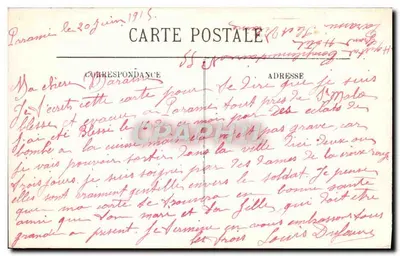 Paramé le 20 juin 1915
CARTE POSTALE
CORRESPONDANCE
ADRESSE
Ma chere Maraine
Je t'ecrit cette carte pour te dire que je suis
blesse et evacué a Paramé tous pres de St Malo
j'ai été blessé le mois par des eclats de
bombe a la cuisse mais pas grave car
je vais pouvoir sortir dans la ville d'ici deux ou
trois jours, je suis soigné par des dames de la croix rouge
elles sont vraiment gentille envers le soldat. Je pense
que ma carte te trouvera en bonne santé
ainsi que ton mari et ta fille qui doit être
grande a present. Je termine en vous embrassant tous
les trois Louis Dufour